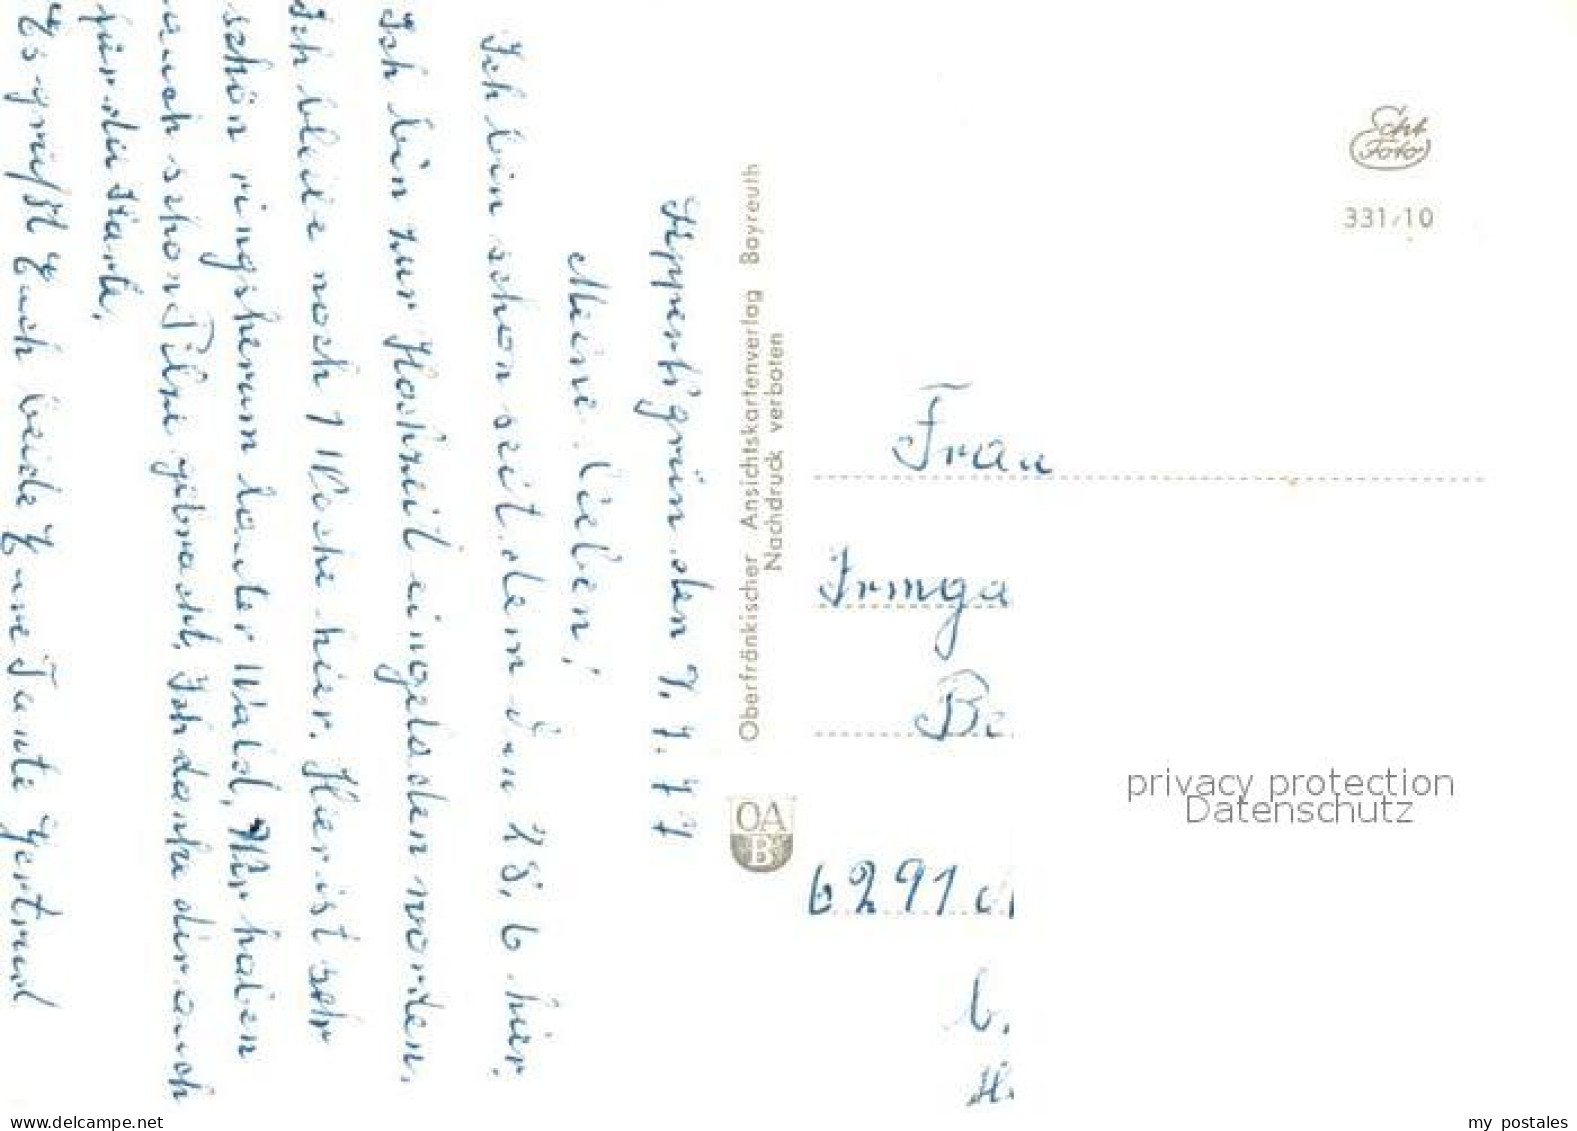 Kippertsgrün den 7.7.77
Meine Lieben!
Ich bin schon seit dem den 28.6 hier.
Ich bin zur Hochzeit eingeladen worden.
Ich bleibe noch 1 Woche hier. Hier ist sehr
schön ringsherum lauter Wald, Wir haben
auch schon Pilze gebracht. Ich danke dir auch
für die Karte.
Es grüßt Euch beide Eure Tante Gertrud
Oberfränkischer Ansichtskartenverlag Bayreuth
Nachdruck verboten
OA
B
Echt
Foto
331/10
Frau
Irmga
Be
6291
b.
privacy protection
Datenschutz
www.delcampe.net
my postales